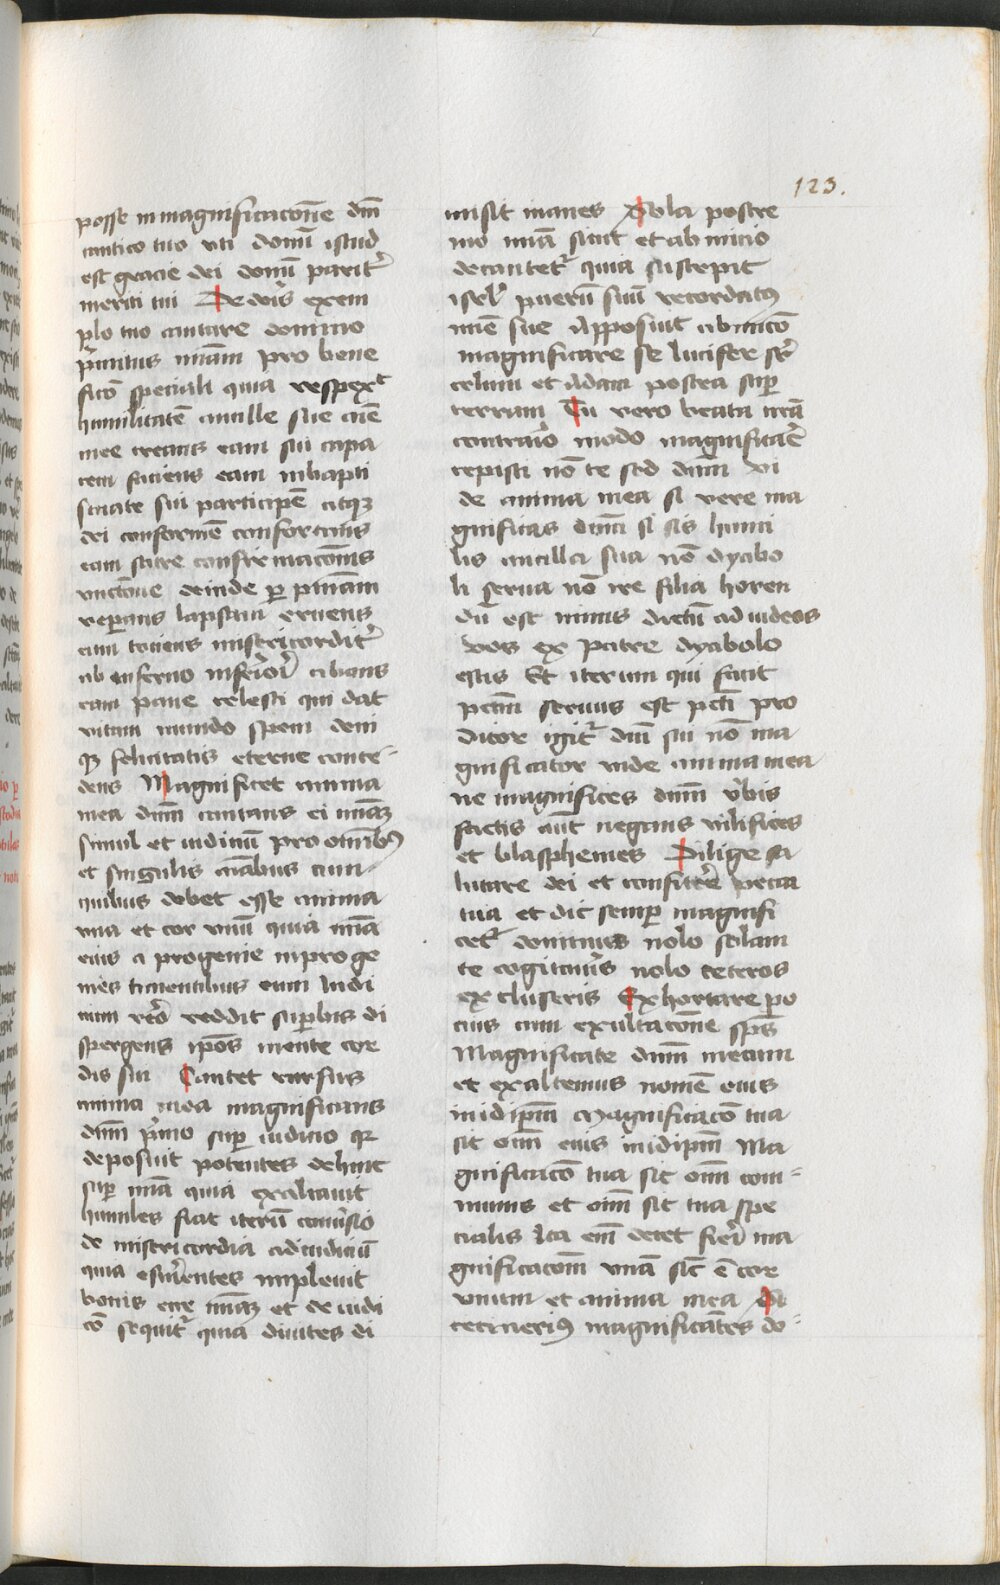 123.
posse in magnificacōne dm̄
cantico tuo vti donū istud
est gracie dei donū parit᷑
meriti tui Dedoīs exem
plo tuo cantare domino
p̄mitus mīam pro bene
ficō speciali quia respex᷑
humilitatē ancille sue aīe
mee creans eam sui capa
cem faciens eam in bapti
smate sui participē atqꝫ
dei conformē confortans
eam sacre confirmacōnis
vnctōne deinde per pn̄iam
reparans lapsam eruens
eam tociens misericordit᷑
ab inferno inferiori cibans
eam pane celesti qui dat
vitam mundo spem deni
qꝫ felicitatis eterne conce-
dens Magnificet anima
mea dnm̄ cantans ei mīaꝫ
simul et iudiciū pro omībꝰ
et singulis aīabus cum
quibus debet esse anima
vna et cor vnū quia mīa
eius a progenie in proge
nies timentibus eum Iudi
cium v̄o reddit superbis di
spergens ip̄os mente cor
dis sui Cantet rursus
anima mea magnificans
dnm̄ p̄mo super iudicio qꝫ
deposuit potentes dehinc
super mīa quia exaltauit
humiles fiat iterū conu̓sio
de misericordia ad iudiciū
quia esurientes impleuit
bonis ecce mīaꝫ et de iudi
cō sequit᷑ quia diuites di
misit inanes Sola postre
mo mīa sicut et ab inicio
decantet᷑ quia suscepit
isrl̓ puerū suū recordatꝰ
mīe sue Apposuit ab inicō
magnificare se lucifer sr̄
celum et Adam postea super
terram Tu vero beata mea
contrario modo magnificar̄
cepisti nō te sed dnm̄ Vi
de anima mea si vere ma
gnificas dnm̄ si sis humi
lis ancilla sua nō dyabo
li serua nō ire filia horen
dū est nimis dictū ad iudeos
Vos ex patre dyabolo
estis Et iterum qui facit
pctm̄ seruus est pcti pro
ditor igit᷑ dnī sui nō ma
gnificator vide anima mea
ne magnifices dnm̄ v̓bis
factis aūt negans vilifices
et blasphemes Dilige sa
lutare dei et confitēre pecca
tua et dic semper magnifi
cet᷑ dominus nolo solam
te cogitau̓is nolo ceteros
excluseris Exhortare po
cius cum exultacōne sps̄
Magnificate dnm̄ mecum
et exaltemus nomē eius
in idip̄m Magnificacō tua
sit om̄ eius in idip̄m Ma
gnificacō tua sit om̄ com-
munis et om̄ sit tua spe
cialis Ita em̄ decet fieri ma
gnificacōm vnā sic̄ ē cor
vnum et anima mea
magnificātes do-